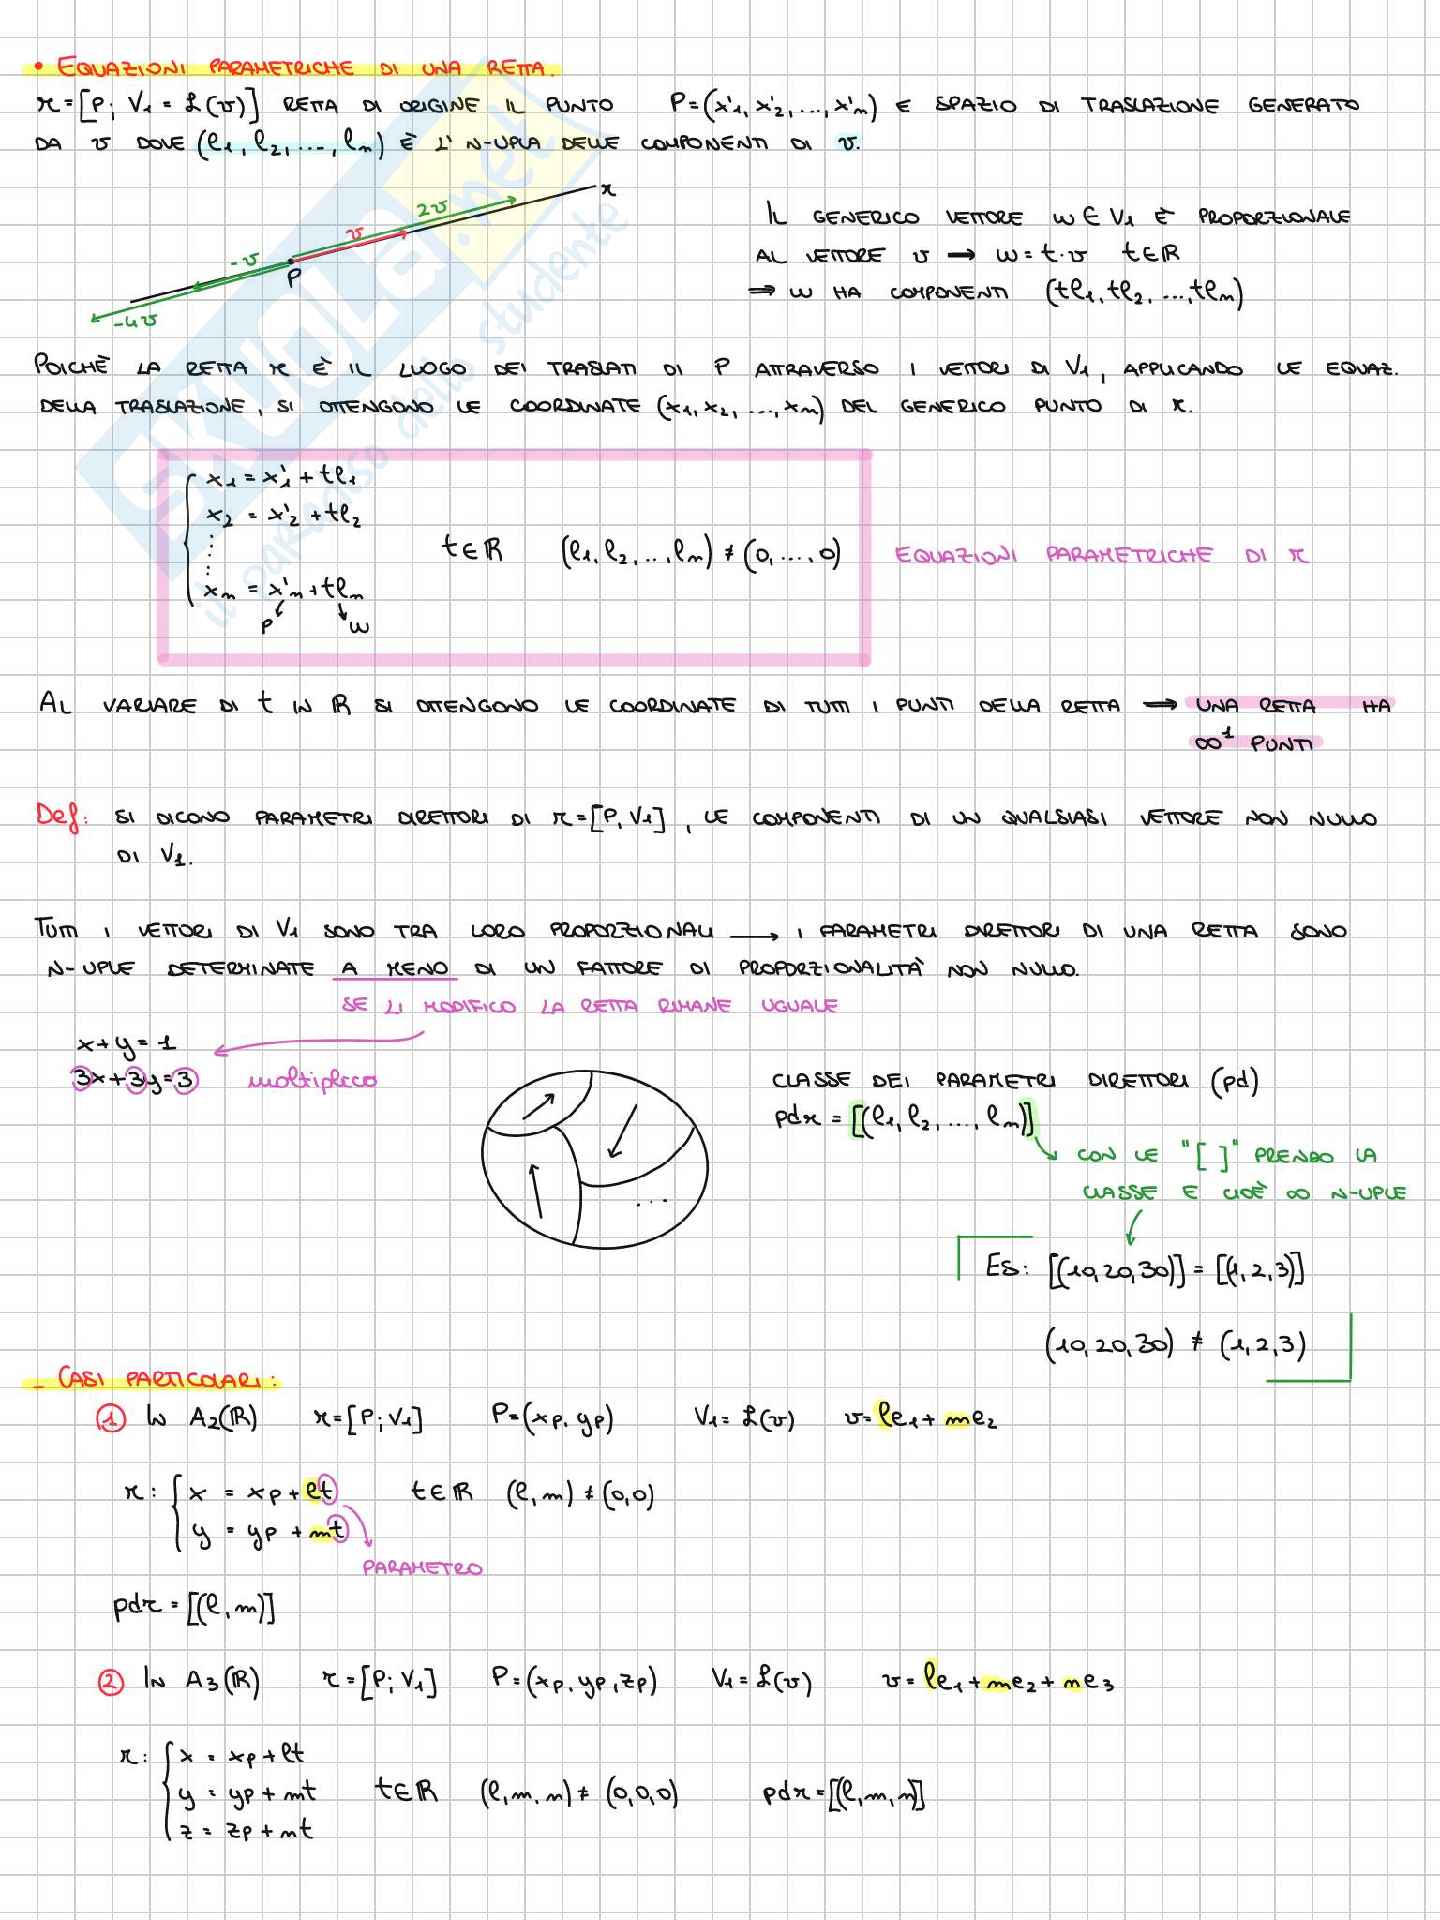 • EQUAZIONI PARAMETRICHE DI UNA RETTA.
r=[P; V₁ = ℒ(v)] RETTA DI ORIGINE IL PUNTO P=(x'₁, x'₂, ..., x'ₙ) E SPAZIO DI TRASLAZIONE GENERATO
DA v DOVE (l₁, l₂, ..., lₙ) È L' N-UPLA DELLE COMPONENTI DI v.
r
2v
v
-v
P
-4v
IL GENERICO VETTORE w ∈ V₁ È PROPORZIONALE
AL VETTORE v → w = t·v t∈ℝ
⇒ w HA COMPONENTI (tl₁, tl₂, ..., tlₙ)
POICHÈ LA RETTA r È IL LUOGO DEI TRASLATI DI P ATTRAVERSO I VETTORI DI V₁, APPLICANDO LE EQUAZ.
DELLA TRASLAZIONE, SI OTTENGONO LE COORDINATE (x₁, x₂, ..., xₙ) DEL GENERICO PUNTO DI r.
x₁ = x'₁ + tl₁
x₂ = x'₂ + tl₂
⋮
xₙ = x'ₙ + tlₙ
P w
t∈ℝ (l₁, l₂, ..., lₙ) ≠ (0, ..., 0) EQUAZIONI PARAMETRICHE DI r
AL VARIARE DI t IN ℝ SI OTTENGONO LE COORDINATE DI TUTTI I PUNTI DELLA RETTA ⇒ UNA RETTA HA
∞¹ PUNTI
Def: SI DICONO PARAMETRI DIRETTORI DI r=[P, V₁], LE COMPONENTI DI UN QUALSIASI VETTORE NON NULLO
DI V₁.
TUTTI I VETTORI DI V₁ SONO TRA LORO PROPORZIONALI → I PARAMETRI DIRETTORI DI UNA RETTA SONO
N-UPLE DETERMINATE A MENO DI UN FATTORE DI PROPORZIONALITÀ NON NULLO.
SE LI MODIFICO LA RETTA RIMANE UGUALE
x+y=1
3x+3y=3 moltiplico
CLASSE DEI PARAMETRI DIRETTORI (pd)
pdr = [(l₁, l₂, ..., lₙ)]
...
CON LE "[ ]" PRENDO LA
CLASSE E CIOÈ ∞ N-UPLE
ES: [(10,20,30)] = [(1,2,3)]
(10,20,30) ≠ (1,2,3)
_ CASI PARTICOLARI:
① IN A₂(ℝ) r=[P; V₁] P=(xp, yp) V₁=ℒ(v) v=le₁+me₂
r: { x = xp + lt t∈ℝ (l,m) ≠ (0,0)
y = yp + mt
PARAMETRO
pdr = [(l,m)]
② IN A₃(ℝ) r=[P; V₁] P=(xp, yp, zp) V₁=ℒ(v) v=le₁+me₂+ne₃
r: { x = xp + lt
y = yp + mt t∈ℝ (l,m,n) ≠ (0,0,0) pdr=[(l,m,n)]
z = zp + nt
SKUOLA.net
il paradiso dello studente